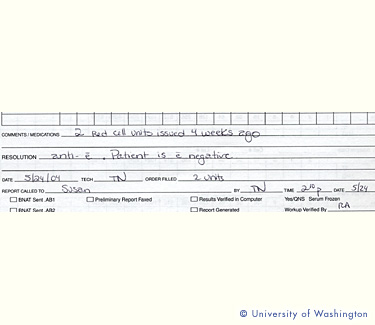 COMMENTS / MEDICATIONS 2 Red cell units issued 4 weeks ago
RESOLUTION anti-ē. Patient is ē negative
DATE 5/24/04 TECH TN ORDER FILLED 2 units
REPORT CALLED TO Susan BY TN TIME 2¹⁰p DATE 5/24
BNAT Sent .AB1 Preliminary Report Faxed Results Verified in Computer Yes/QNS Serum Frozen
BNAT Sent .AB2 Report Generated Workup Verified By RA
© University of Washington